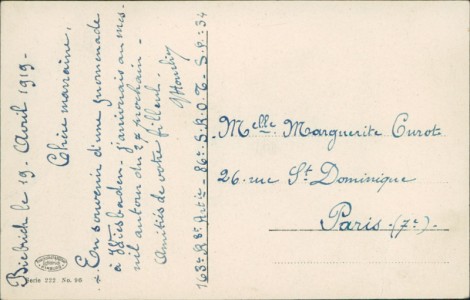 Biebrich le 19 - Avril 1919 -
Chère marraine,
En souvenir d'une promenade
à Wiesbaden - j'arriverais au mes-
nil autour du 27 prochain -
Amitiés de votre filleul.
163e R.se A.ie - 86e S.R.O.T - S.P: 34
Melle Marguerite Curot
26. rue St Dominique
Paris - (7e).
Serie 222 No. 96